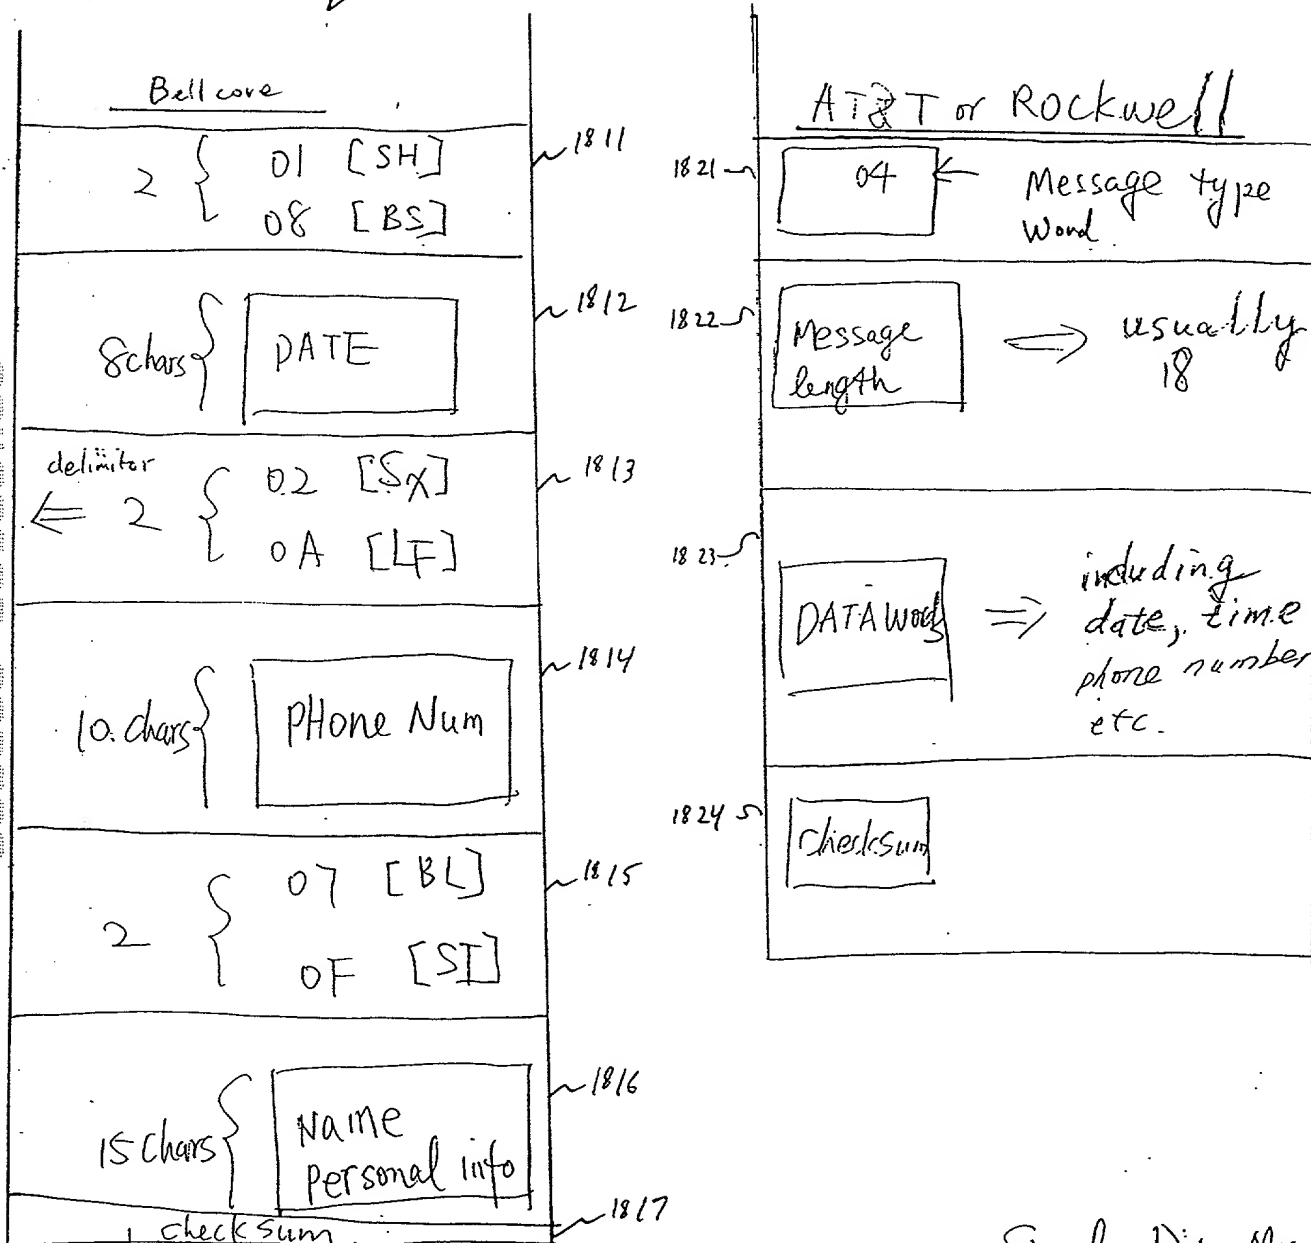 Bellcore
2 { 01 [SH]
08 [BS]
1811
8chars { DATE
1812
delimiter
⇐ 2 { 02 [SX]
0A [LF]
1813
10. chars { PHone Num
1814
2 { 07 [BL]
0F [SI]
1815
15 chars { Name
personal info
1816
1 checksum
1817
AT&T or Rockwell
1821
04 ← Message type
Word
1822
Message
length
⇒ usually
18
1823
DATA Words ⇒ including
date, time
phone number
etc.
1824
checksum